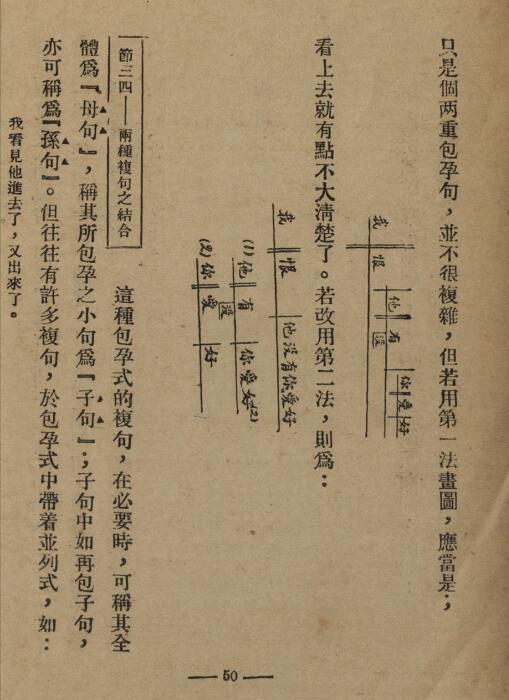 只是個两重包孕句，並不很複雜，但若用第一法畫圖，應當是：
我 恨
他 有
没
你 愛 好
看上去就有點不大清楚了。若改用第二法，則爲：
我 恨 他没有你愛好
(1) 他 有 你愛好(2)
没
(2) 你 愛 好
節三四——兩種複句之結合
這種包孕式的複句，在必要時，可稱其全
體爲『母句』，稱其所包孕之小句爲『子句』；子句中如再包子句，
亦可稱爲『孫句』。但往往有許多複句，於包孕式中帶着並列式，如：
我看見他進去了，又出來了。
— 50 —